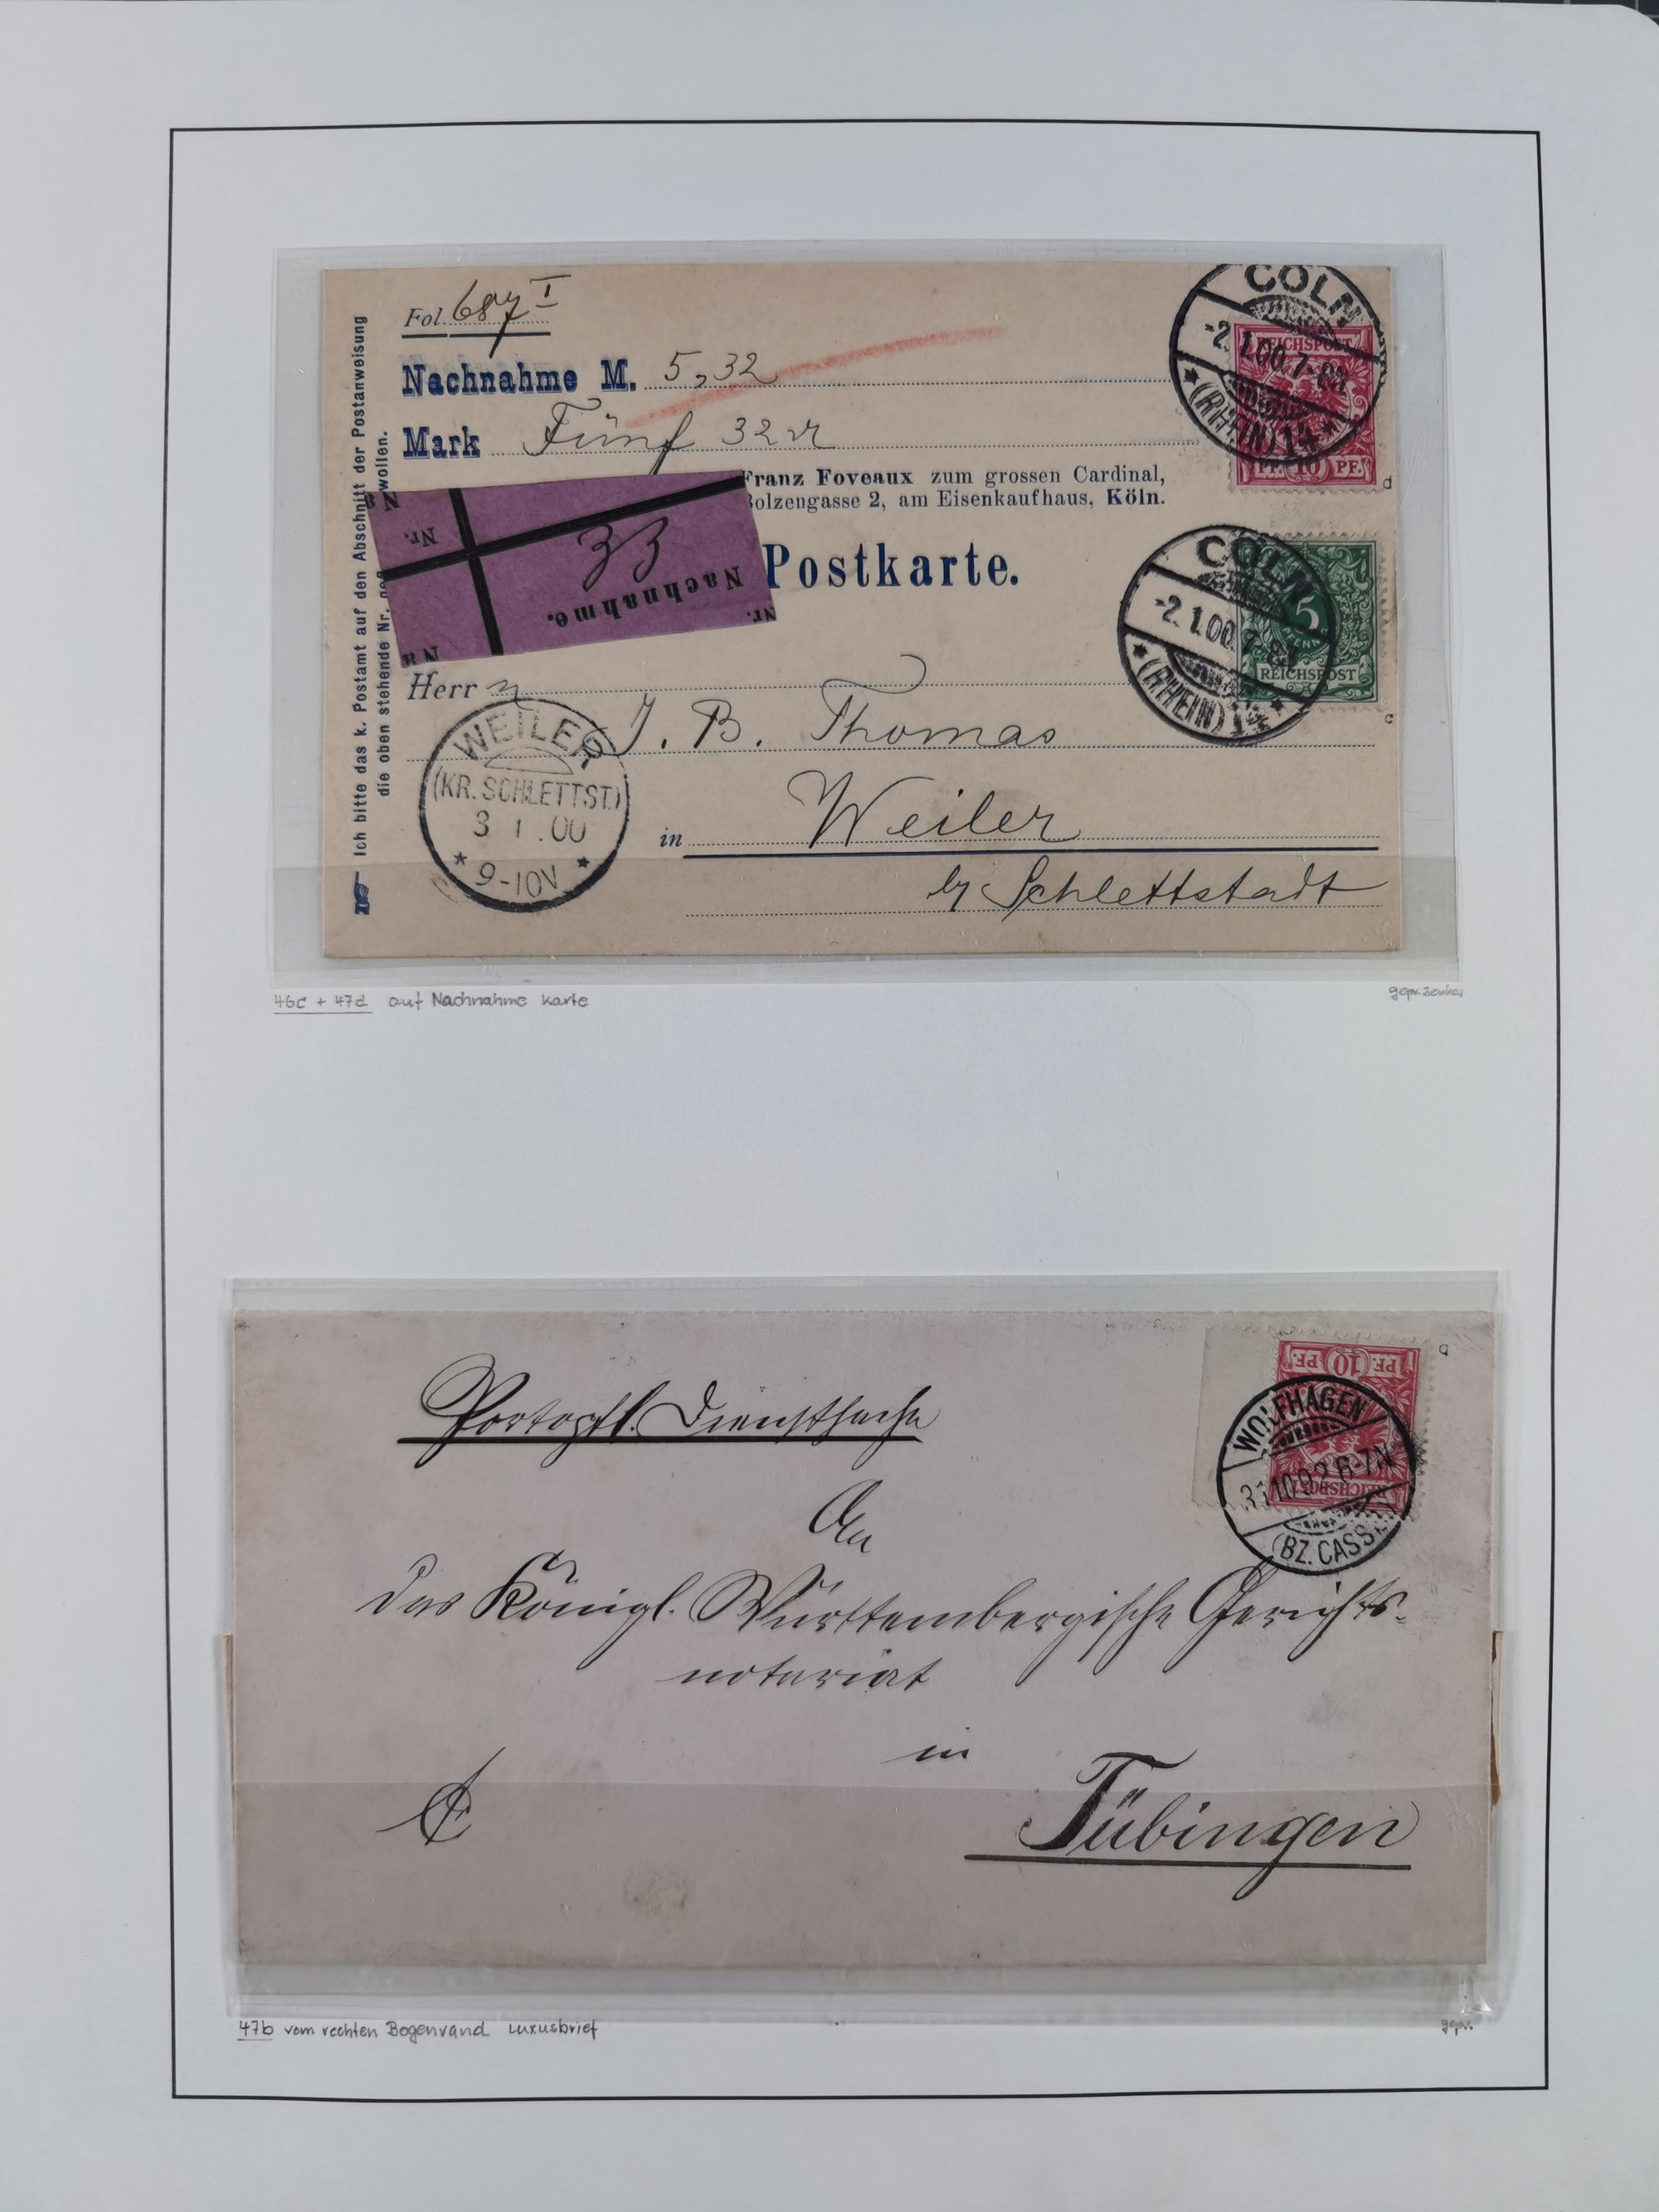 Fol. 687 I
Nachnahme M. 5,32
Mark Fünf 32
Franz Foveaux zum grossen Cardinal,
Bolzengasse 2, am Eisenkaufhaus, Köln.
Postkarte.
Ich bitte das k. Postamt auf den Abschnitt der Postanweisung
die oben stehende Nr. wollen.
Nr.
33
Nachnahme.
Nr.
Herrn
J. B. Thomas
in Weiler
by Schlettstadt
WEILER
(KR. SCHLETTST.)
3 1 .00
9-10V
CÖLN
-2. 1.00. 7-8
(RHEIN) 14
REICHSPOST
PF. 10 PF.
d
CÖLN
-2. 1.00.
(RHEIN) 14
5
REICHSPOST
c
46c + 47d auf Nachnahme Karte
gepr. Zenker
Portopfl. Dienstsache
An
das Königl. Württembergische Gerichts-
notariat
in
Tübingen
PF. 10 PF.
REICHSPOST
WOLFHAGEN
6-7N
(BZ. CASS
47b vom rechten Bogenrand Luxusbrief
gepr.